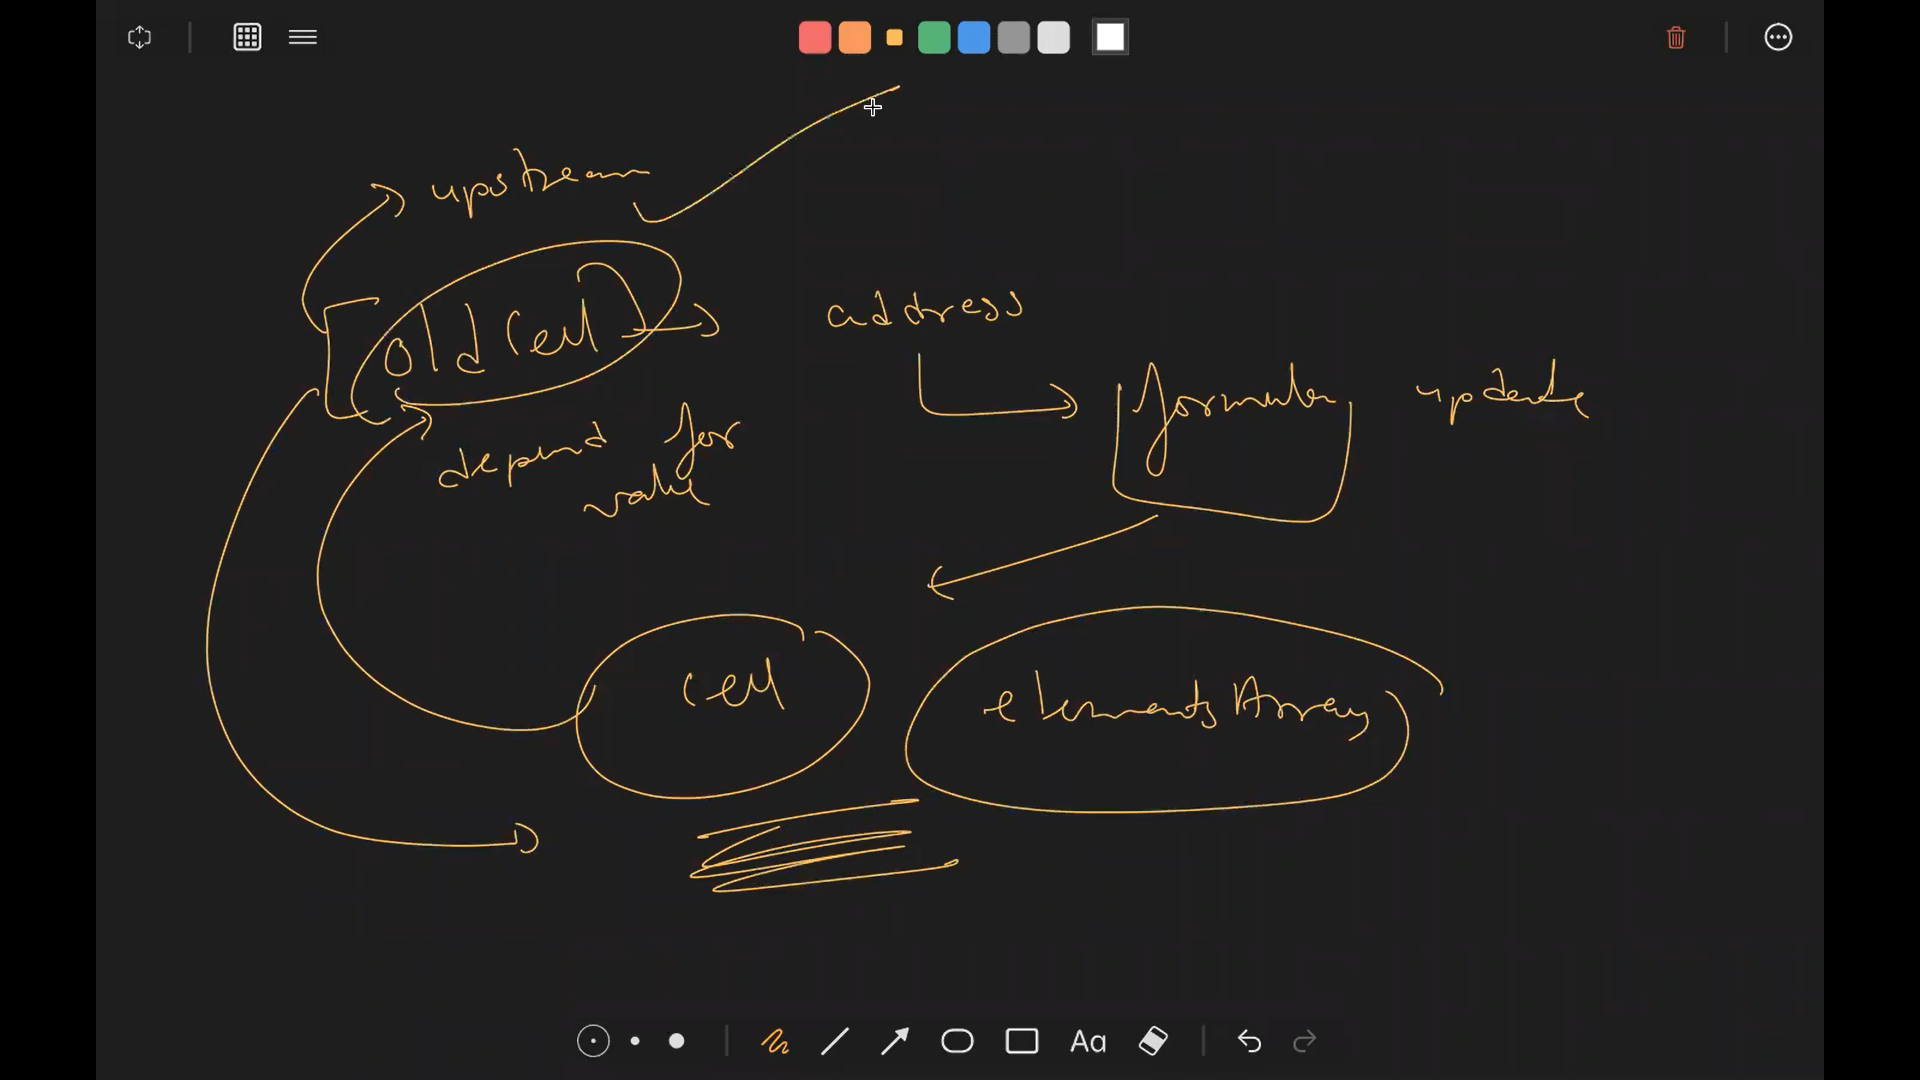 upstream
oldCell
address
formula update
depend for
value
cell
elementsArray
Aa